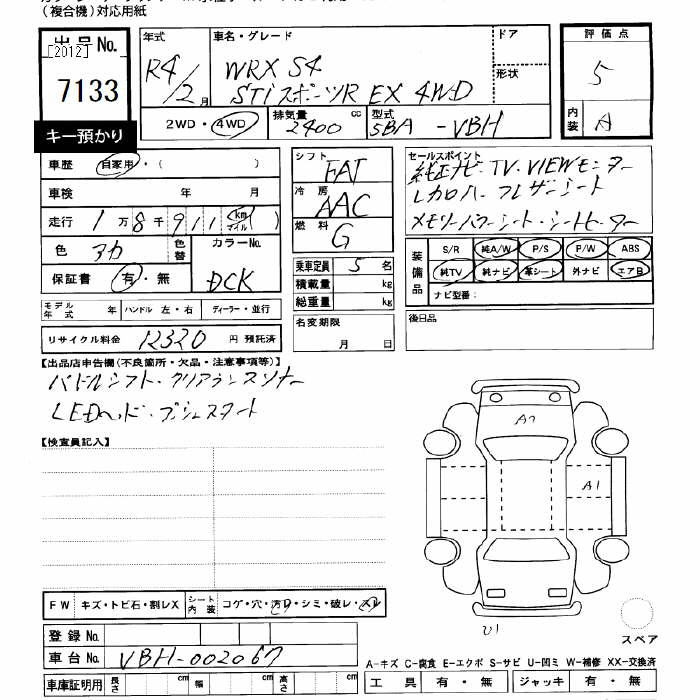 （複合機）対応用紙
出品No.
[2012]
7133
キー預かり
年式
R4/2月
車名・グレード
WRX S4
STiスポーツR EX 4WD
ドア
形状
評価点
5
内装
A
2WD・4WD
排気量
2400 cc
型式
5BA-VBH
車歴 自家用・( )
車検 年 月
走行 1万8千911(km マイル)
色 アカ 色替
カラーNo.
DCK
保証書 有・無
シフト
FAT
冷房
AAC
燃料
G
乗車定員 5名
積載量 kg
総重量 kg
セールスポイント
純正ナビ・TV・VIEWモニター
レカロ/ハーフレザーシート
メモリーパワーシート・シートヒーター
装備品
S/R 純A/W P/S P/W ABS
純TV 純ナビ 革シート 外ナビ エアB
ナビ型番：
モデル年式 年 ハンドル 左・右 ディーラー・並行
リサイクル料金 12320 円 預託済
名変期限
月 日
後日品
【出品店申告欄(不良箇所・欠品・注意事項等)】
パドルシフト・クリアランスソナー
LEDヘッド・プッシュスタート
【検査員記入】
A1
U1
スペア
FW キズ・トビ石・割レX シート内装 コゲ・穴・汚レ・シミ・破レ・スレ
登録No.
車台No. VBH-002067
車庫証明用 長さ cm 幅 cm 高さ cm
A-キズ C-腐食 E-エクボ S-サビ U-凹ミ W-補修 XX-交換済
工具 有・無 ジャッキ 有・無